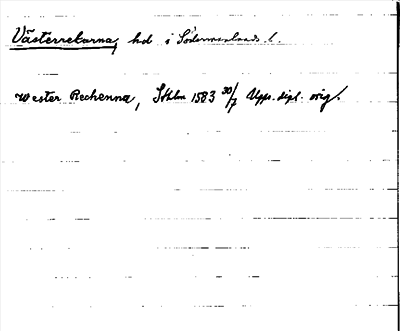 Västerrekarna, hd i Södermanlands l.
Wester Rechenna, Sthlm 1583 30/7 Upps. dipl. orig.